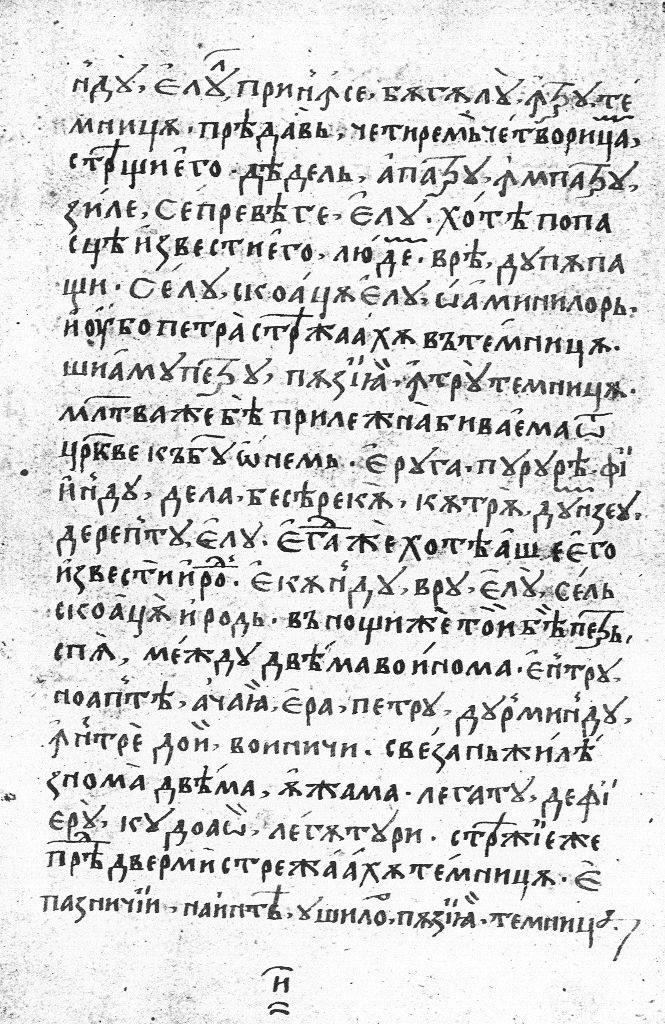 и҆́ндꙋ, є҆лꙋ̑, прии҆́ꙟсе, бѫгѫлꙋ̀, ꙟ҆ꙁꙋ, те
мницѫ. прѣда́вь, четиремь че́творица,
стрⷤщи є҆го̀. дѣдель, а҆паꙁꙋ, ꙟ҆мпаꙁꙋ,
зи́ле, се́превѣге, є҆лꙋ. хо́тѣ попа
сцѣ и҆звести є҆го, лю́де. врѣ, дꙋпѫпа
щи. се́лꙋ, скоа́цѫ є҆лꙋ, ѡ҆а́минилорь.
и҆ оу҆бо петра̀ стрⷤжаа́хѫ въ те́мницѫ.
шиа҆мꙋпеꙁꙋ, пѫзїꙗ̀, ꙟ҆трꙋ̀ темницѫ.
млтва же бѣ прилежна̀ бивае҆ма ѿ
црⷦве къ бꙋ ѡ҆ немь. є҆ рꙋга, пꙋрꙋрѣ, фїи́
и҆́ндꙋ, дела, бесѣрекѫ̀, кѫтрѫ, дꙋнзеꙋ,
дерептꙋ, є҆лꙋ. є҆гда жѐ хотѣа҆ше є҆го
и҆звести и҆рⷣо. є҆кѫ́ндꙋ, врꙋ, є҆лꙋ̀, се́ль
скоа҆цѫ̀ и҆родь. въ нощи жѐ то́и бѣ̀ пеⷮрь,
спѫ̀, ме́ждꙋ двѣ́ма вои́нома. є҆нтрꙋ,
ноаптѣ, а҆чаꙗ̀, є҆ра, петрꙋ, дꙋрми́ндꙋ,
ꙟ҆нтрѐ доѝ, воиничи. свеза́нь жилѣ́
знома̀ двѣ́ма, ѫ҆жама. легатꙋ, де фїи́
є҆рꙋ̀, кꙋ доаѡ̀, легѫтꙋри. стрⷤжїе же
прⷣѣ двер́ми стрежа́а́хѫ те́мницѫ. є҆
пазничїи, наинтѣ, ᲂушилѡ, пѫзїꙗ̀. темницѫ.
и҃